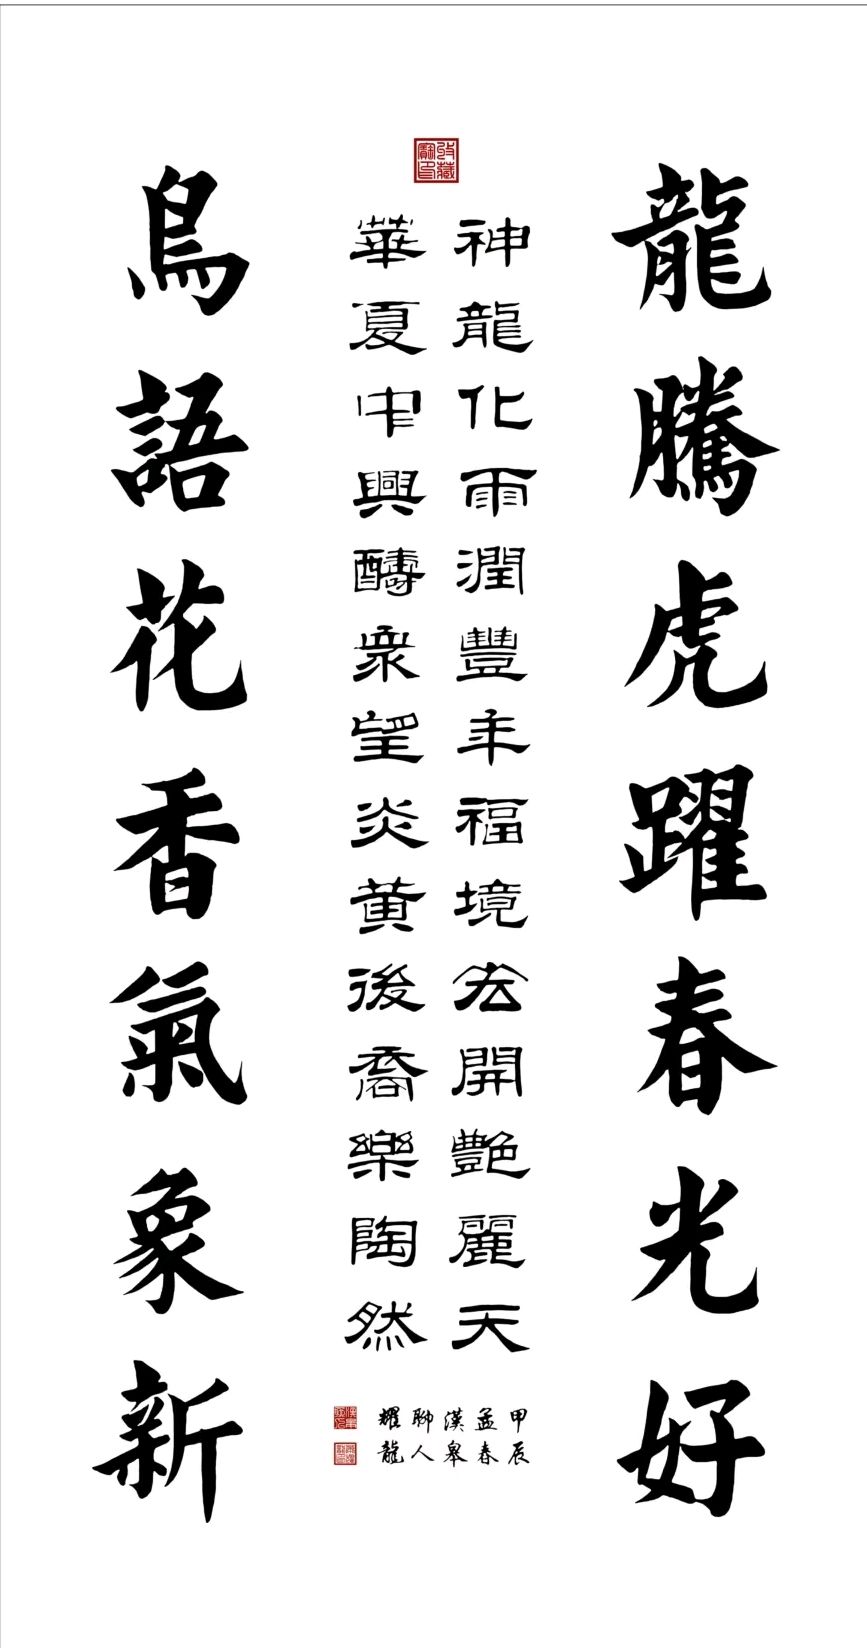 龍騰虎躍春光好
神龍化雨潤豐年福境宏開艷麗天
華夏中興酬衆望炎黃後裔樂陶然
鳥語花香氣象新
甲辰
孟春
漢皋
聊人
耀龍